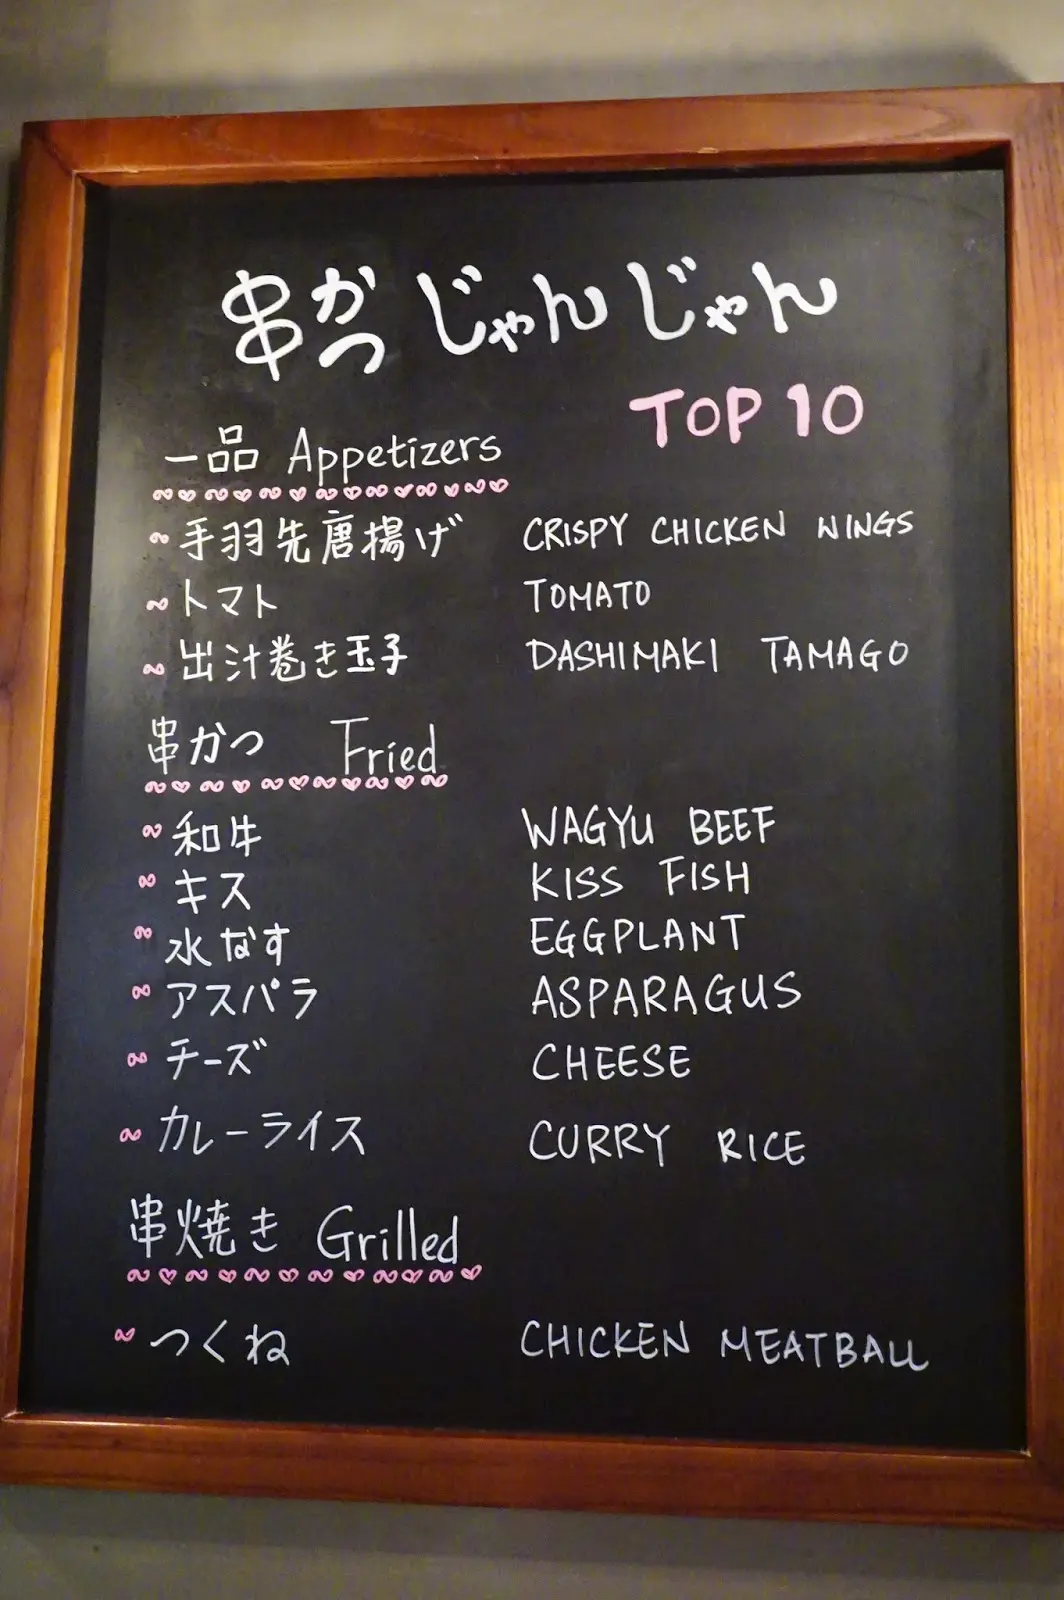 串かつ じゃんじゃん
TOP 10
一品 Appetizers
~手羽先唐揚げ CRISPY CHICKEN WINGS
~トマト TOMATO
~出汁巻き玉子 DASHIMAKI TAMAGO
串かつ Fried
~和牛 WAGYU BEEF
~キス KISS FISH
~水なす EGGPLANT
~アスパラ ASPARAGUS
~チーズ CHEESE
~カレーライス CURRY RICE
串焼き Grilled
~つくね CHICKEN MEATBALL